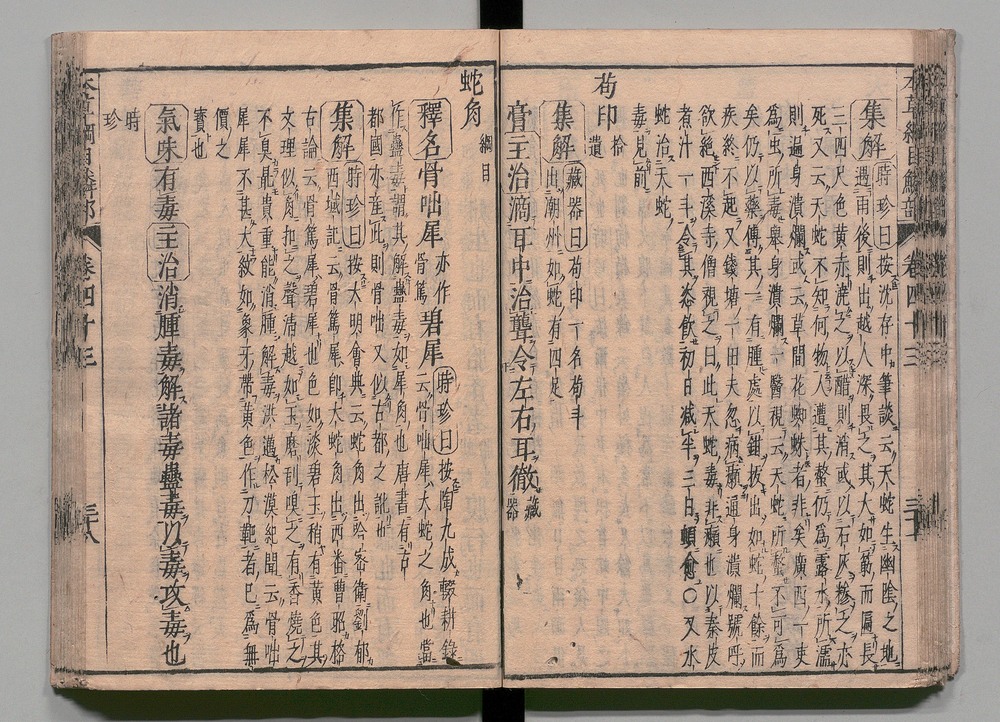 集解時珍曰按沈存中筆談云天蛇生幽陰之地
三四尺色黃赤澆之以醋則消或以石灰糝之亦
遇雨後則出越人深畏之其大如筯而匾長
死又云天蛇不知何物人遭其螫仍爲露水所濡
則遍身潰爛或云草間花蜘蛛者非矣廣西一吏
爲虫所毒舉身潰爛一醫視云天蛇所螫不可爲
矣仍以藥傅其一有腫處以鉗拔出如蛇十餘而
疾終不起又錢塘一田夫忽病癩遍身潰爛號呼
欲絕西溪寺僧視之曰此天蛇毒非癩也以秦皮
煮汁一斗令其恣飲初日減半三日頓愈○又水
蛇治天蛇
毒見前
茍印拾遺
集解藏器曰茍印一名茍斗
出潮州如蛇有四足
膏主治滴耳中治聾令左右耳徹藏器
蛇角綱目
釋名骨咄犀亦作骨篤碧犀時珍曰按陶九成輟耕錄
云骨咄犀大蛇之角也當
作蠱毒謂其解蠱毒如犀角也唐書有古
都國亦產此則骨咄又似古都之訛也
集解時珍曰按大明會典云蛇角出哈密衛劉郁
西域記云骨篤犀即大蛇角出西番曹昭格
古論云骨篤犀碧犀也色如淡碧玉稍有黃色其
文理似角扣之聲清越如玉磨刮嗅之有香燒之
不臭最貴重能消腫解毒洪邁松漠紀聞云骨咄
犀犀不甚大紋如象牙帶黃色作刀靶者已爲無
價之
寶也
氣味有毒主治消腫毒解諸毒蠱毒以毒攻毒也
時珍
本草綱目鱗部
卷四十三